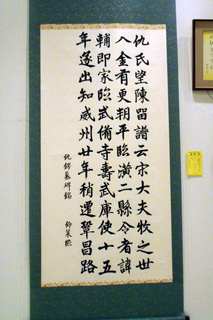 仇氏望陳留譜云宋大夫牧之世
入金有更朝平臨潢二縣令者諱
輔即家臨式備寺壽武庫使十五
年遂出知威州廿年稍遷鞏昌路
仇鍔墓碑銘